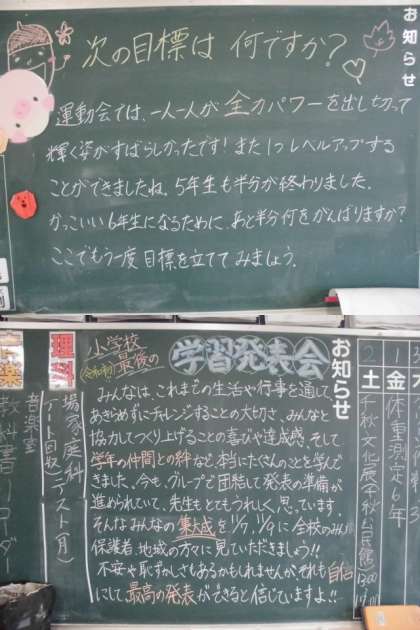 お知らせ
次の目標は 何ですか?
運動会では、一人一人が全力パワーを出しきって
輝く姿がすばらしかったです!また1つレベルアップする
ことができましたね。5年生も半分が終わりました。
かっこいい6年生になるために、あと半分何をがんばりますか?
ここでもう一度目標を立ててみましょう。
お知らせ
小学校
最後の
学習発表会
みんなは、これまでの生活や行事を通して、
あきらめずにチャレンジすることの大切さ、みんなと
協力してつくり上げることの喜びや達成感、そして
学年の仲間との絆など、本当にたくさんのことを学んで
きました。今も、グループで団結して発表の準備が
進められていて、先生もとてもうれしく思っています。
そんなみんなの集大成を11/7、11/9に全校のみんな
保護者、地域の方々に見ていただきましょう!!
不安や恥ずかしさもあるかもしれませんが、それも自信
にして、最高の発表ができると信じていますよ!!
2
土
千秋文化展
千秋公民館
1
金
体重測定6年
理科
場 家庭科
テスト(月)
ノート回収
音楽
音楽室
教科書 リコーダー